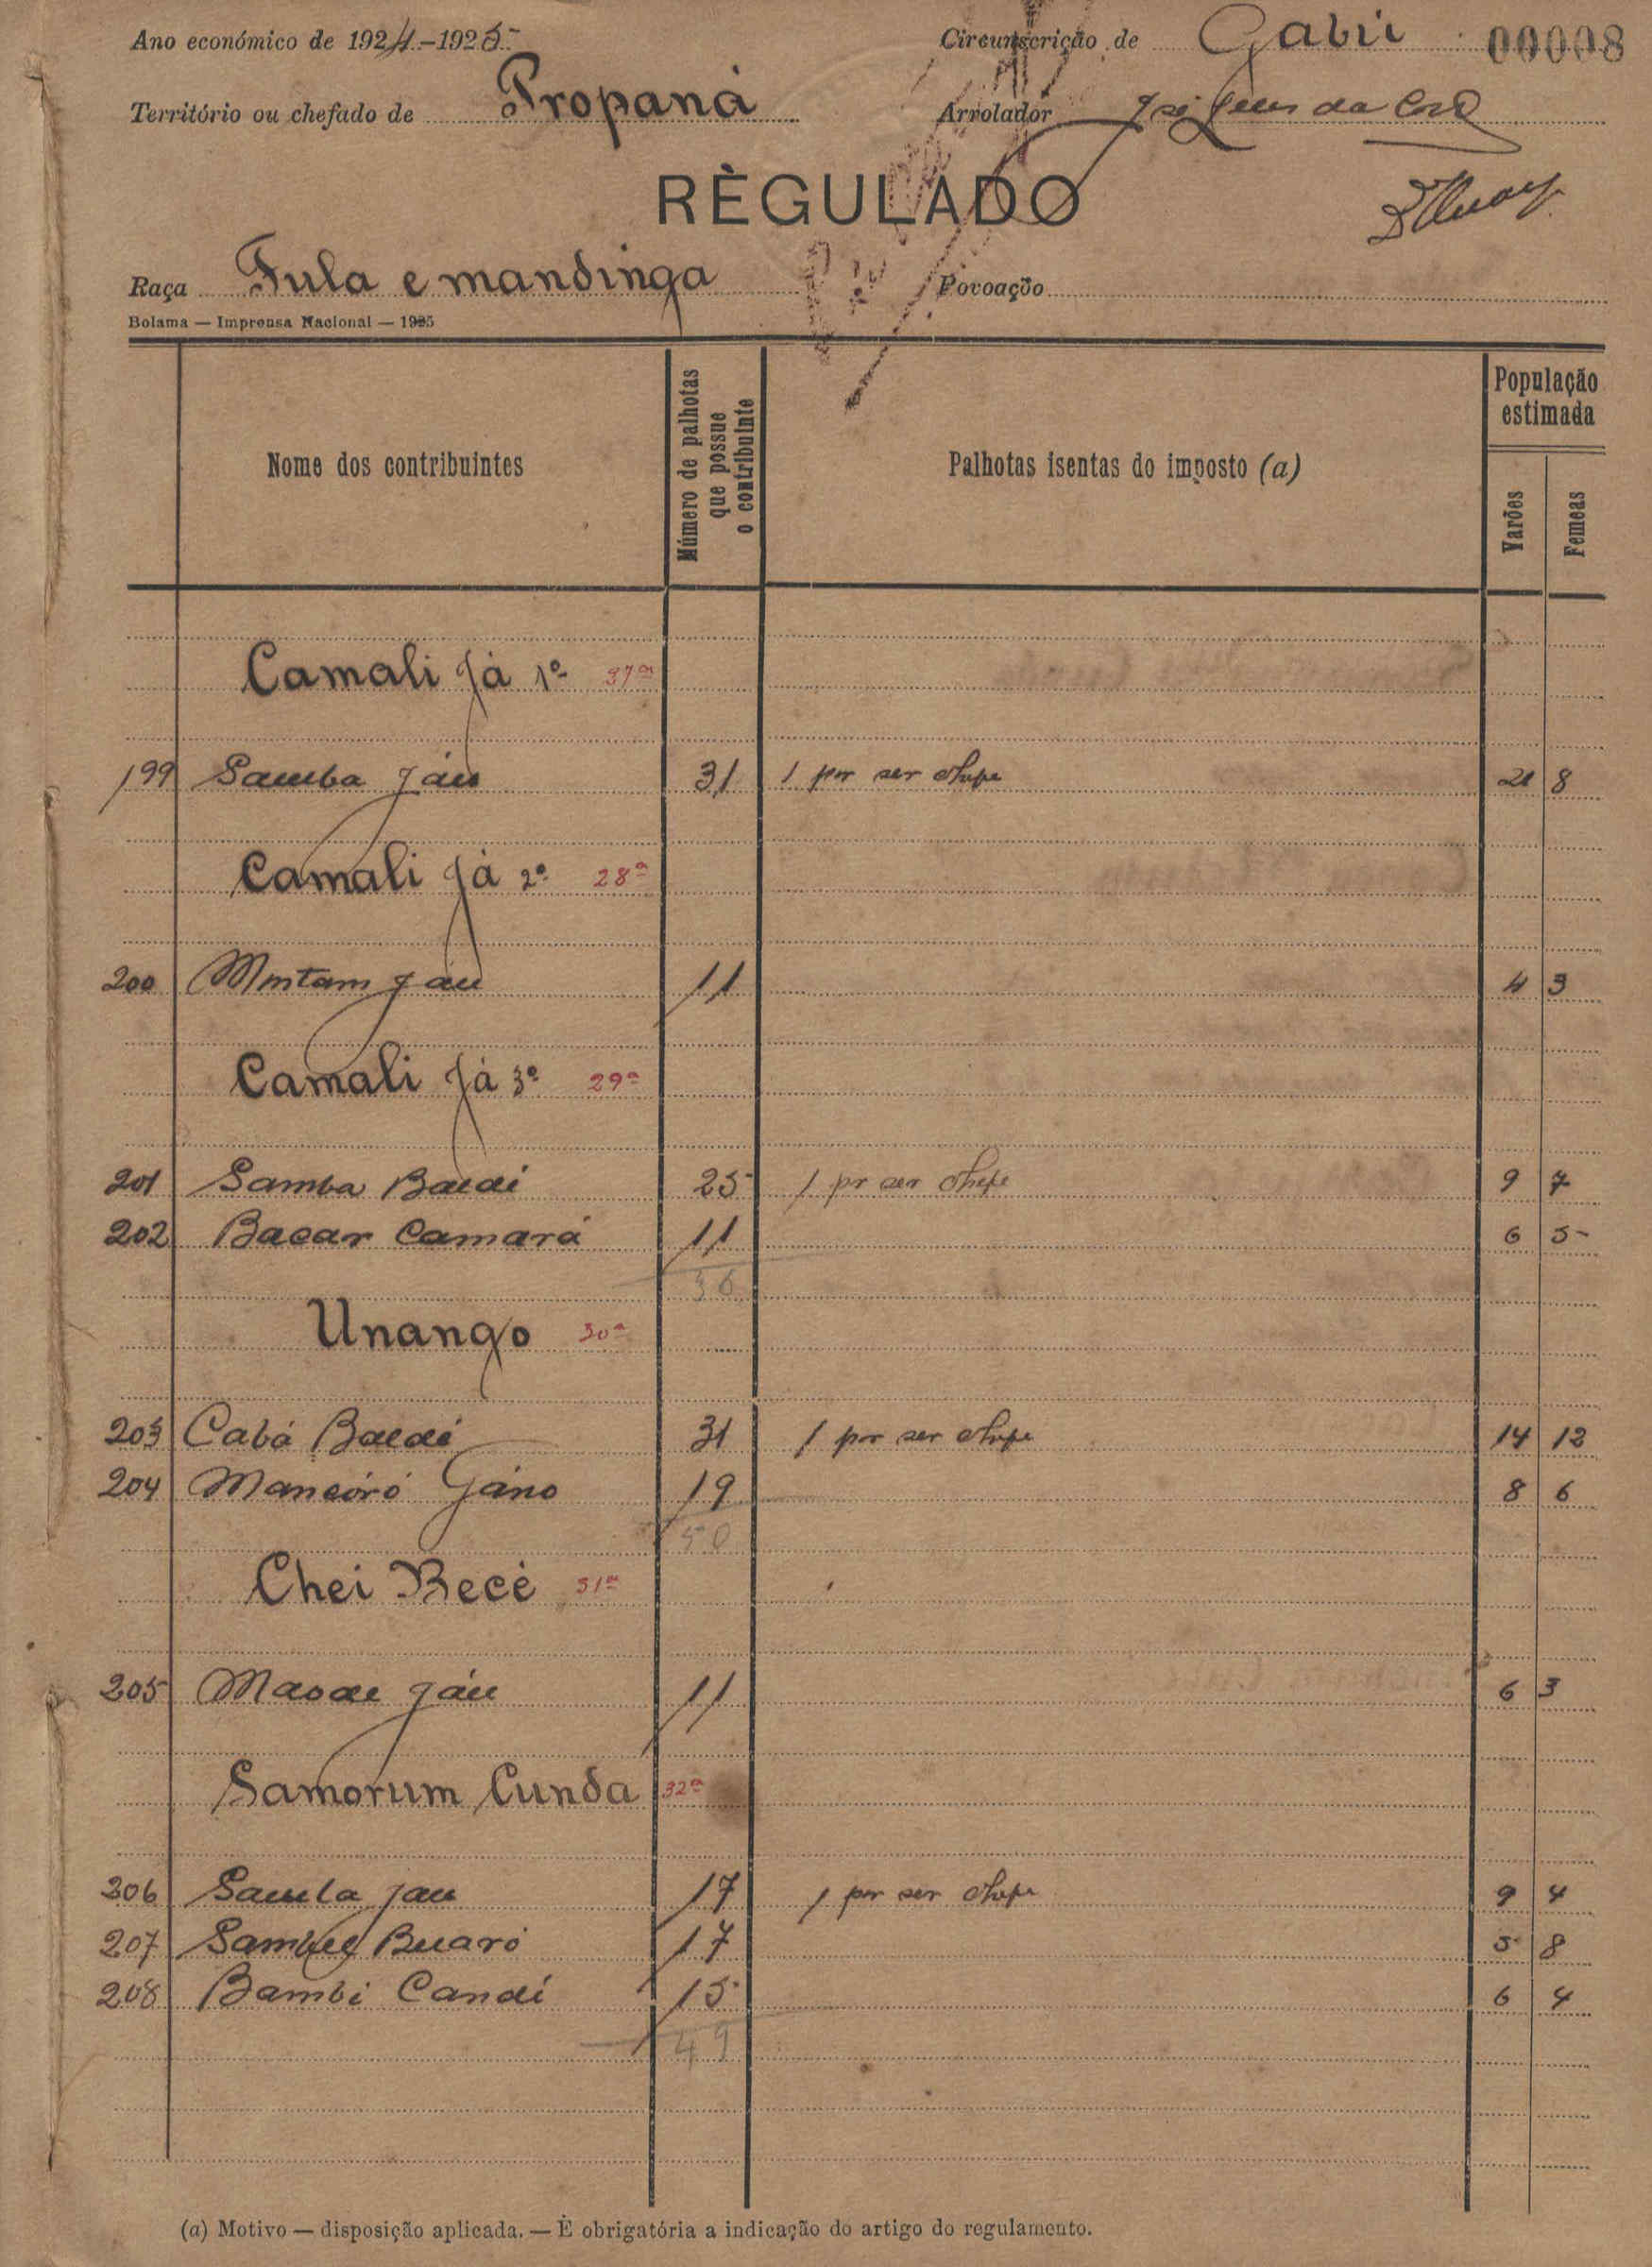 Ano económico de 1924-1925 Circunscrição de Gabú 00008
Território ou chefado de Propaná Arrolador José da
RÈGULADO
Raça Fula e mandinga Povoação
Bolama — Imprensa Nacional — 1925
Nome dos contribuintes
Número de palhotas que possue o contribuinte
Palhotas isentas do imposto (a)
População estimada
Varões
Femeas
Camali Já 1º 37ª
199 Samba Jáu 31 1 por ser chefe 21 8
Camali Já 2º 28ª
200 Jáu 11 4 3
Camali Já 3º 29ª
201 Samba Baldé 25 1 por ser chefe 9 7
202 Bacar Camará 11 6 5
36
Unango 30ª
203 Cabá Baldé 31 1 por ser chefe 14 12
204 Mancóró Gáno 19 8 6
50
Chei Becé 31ª
205 Jáu 11 6 3
Samorum Cunda 32ª
206 Samba Jau 17 1 por ser chefe 9 4
207 Buaró 17 5 8
208 Bambi Candé 15 6 4
49
(a) Motivo — disposição aplicada. — É obrigatória a indicação do artigo do regulamento.